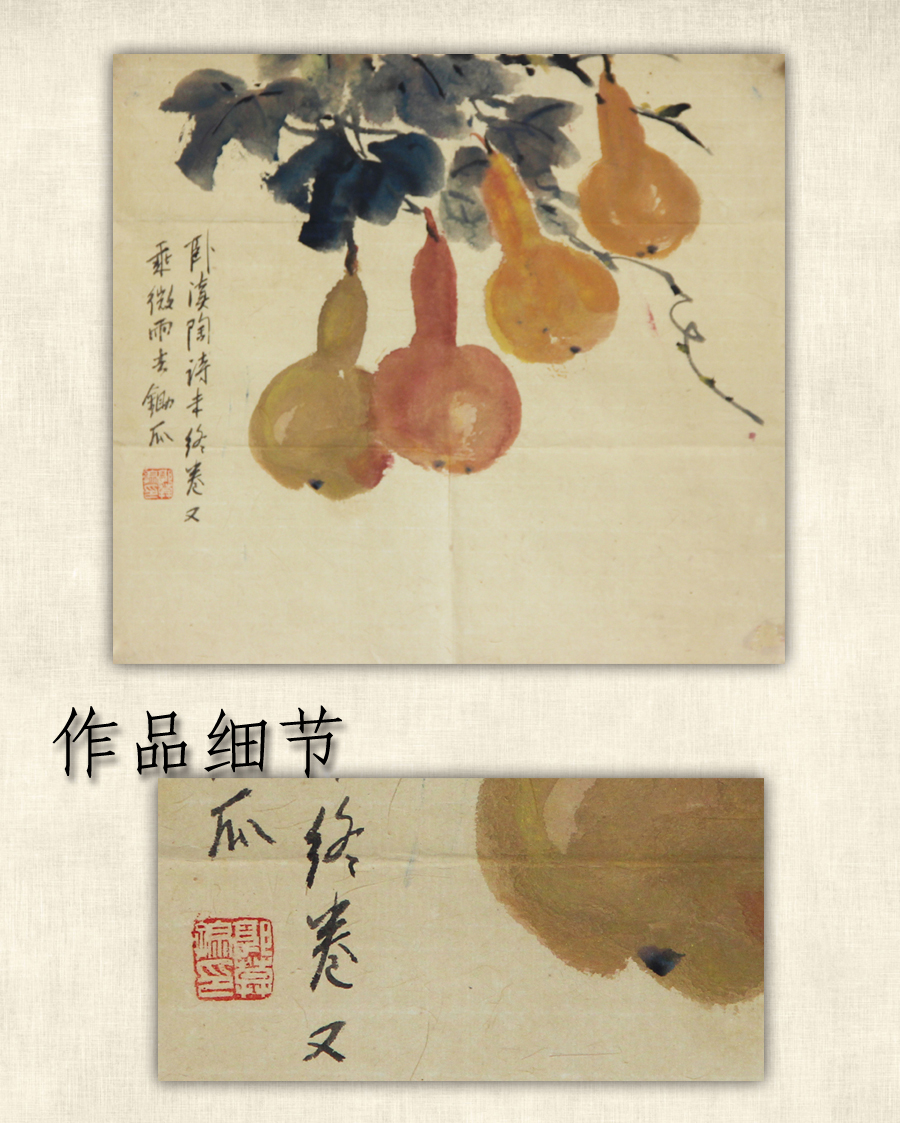 卧读陶诗未终卷又
乘微雨去鋤瓜
作品细节
终卷又
瓜